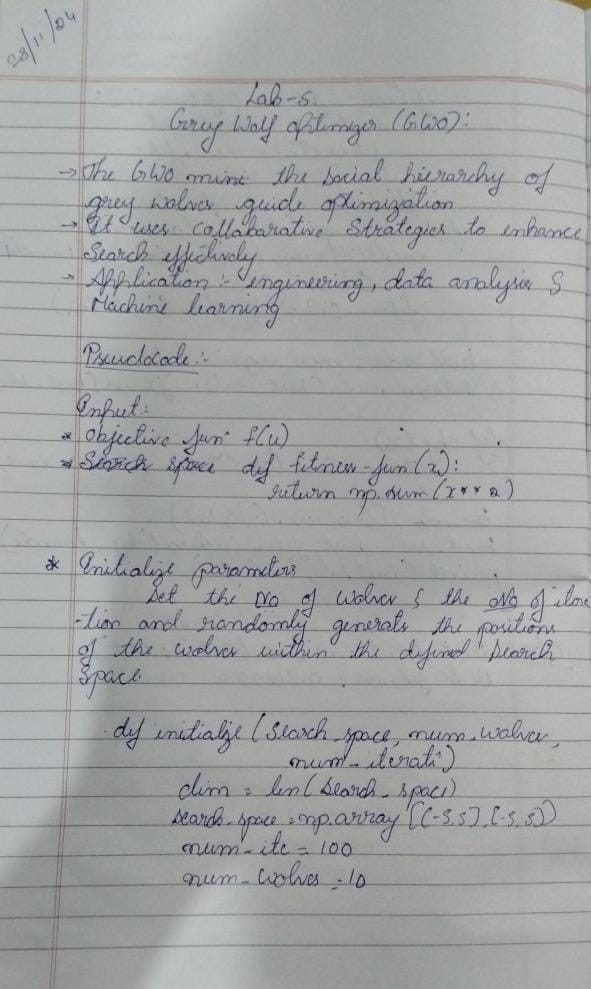 28/11/24
Lab-5.
Grey Wolf optimizer (GWO):
→ The GWO mimi the social hierarchy of
grey wolves guide optimization
→ It uses collabarative Strategies to enhance
Search effectively
→ Application:- engineering, data analysis &
Machine learning
Pseudocode:-
Input:
* Objective fun f(u)
* Search space def fitness-fun(x):
return np.sum(x**2)
* Initialize parameters
Set the No of wolves & the No of itera
-tion and randomly generate the positions
of the wolves within the defined search
Space
def initialize (search_space, num_wolves,
num_iterati)
dim = len(search_space)
search_space = np.array [(-5,5], [-5,5])
num-ite = 100
num-wolves = 10